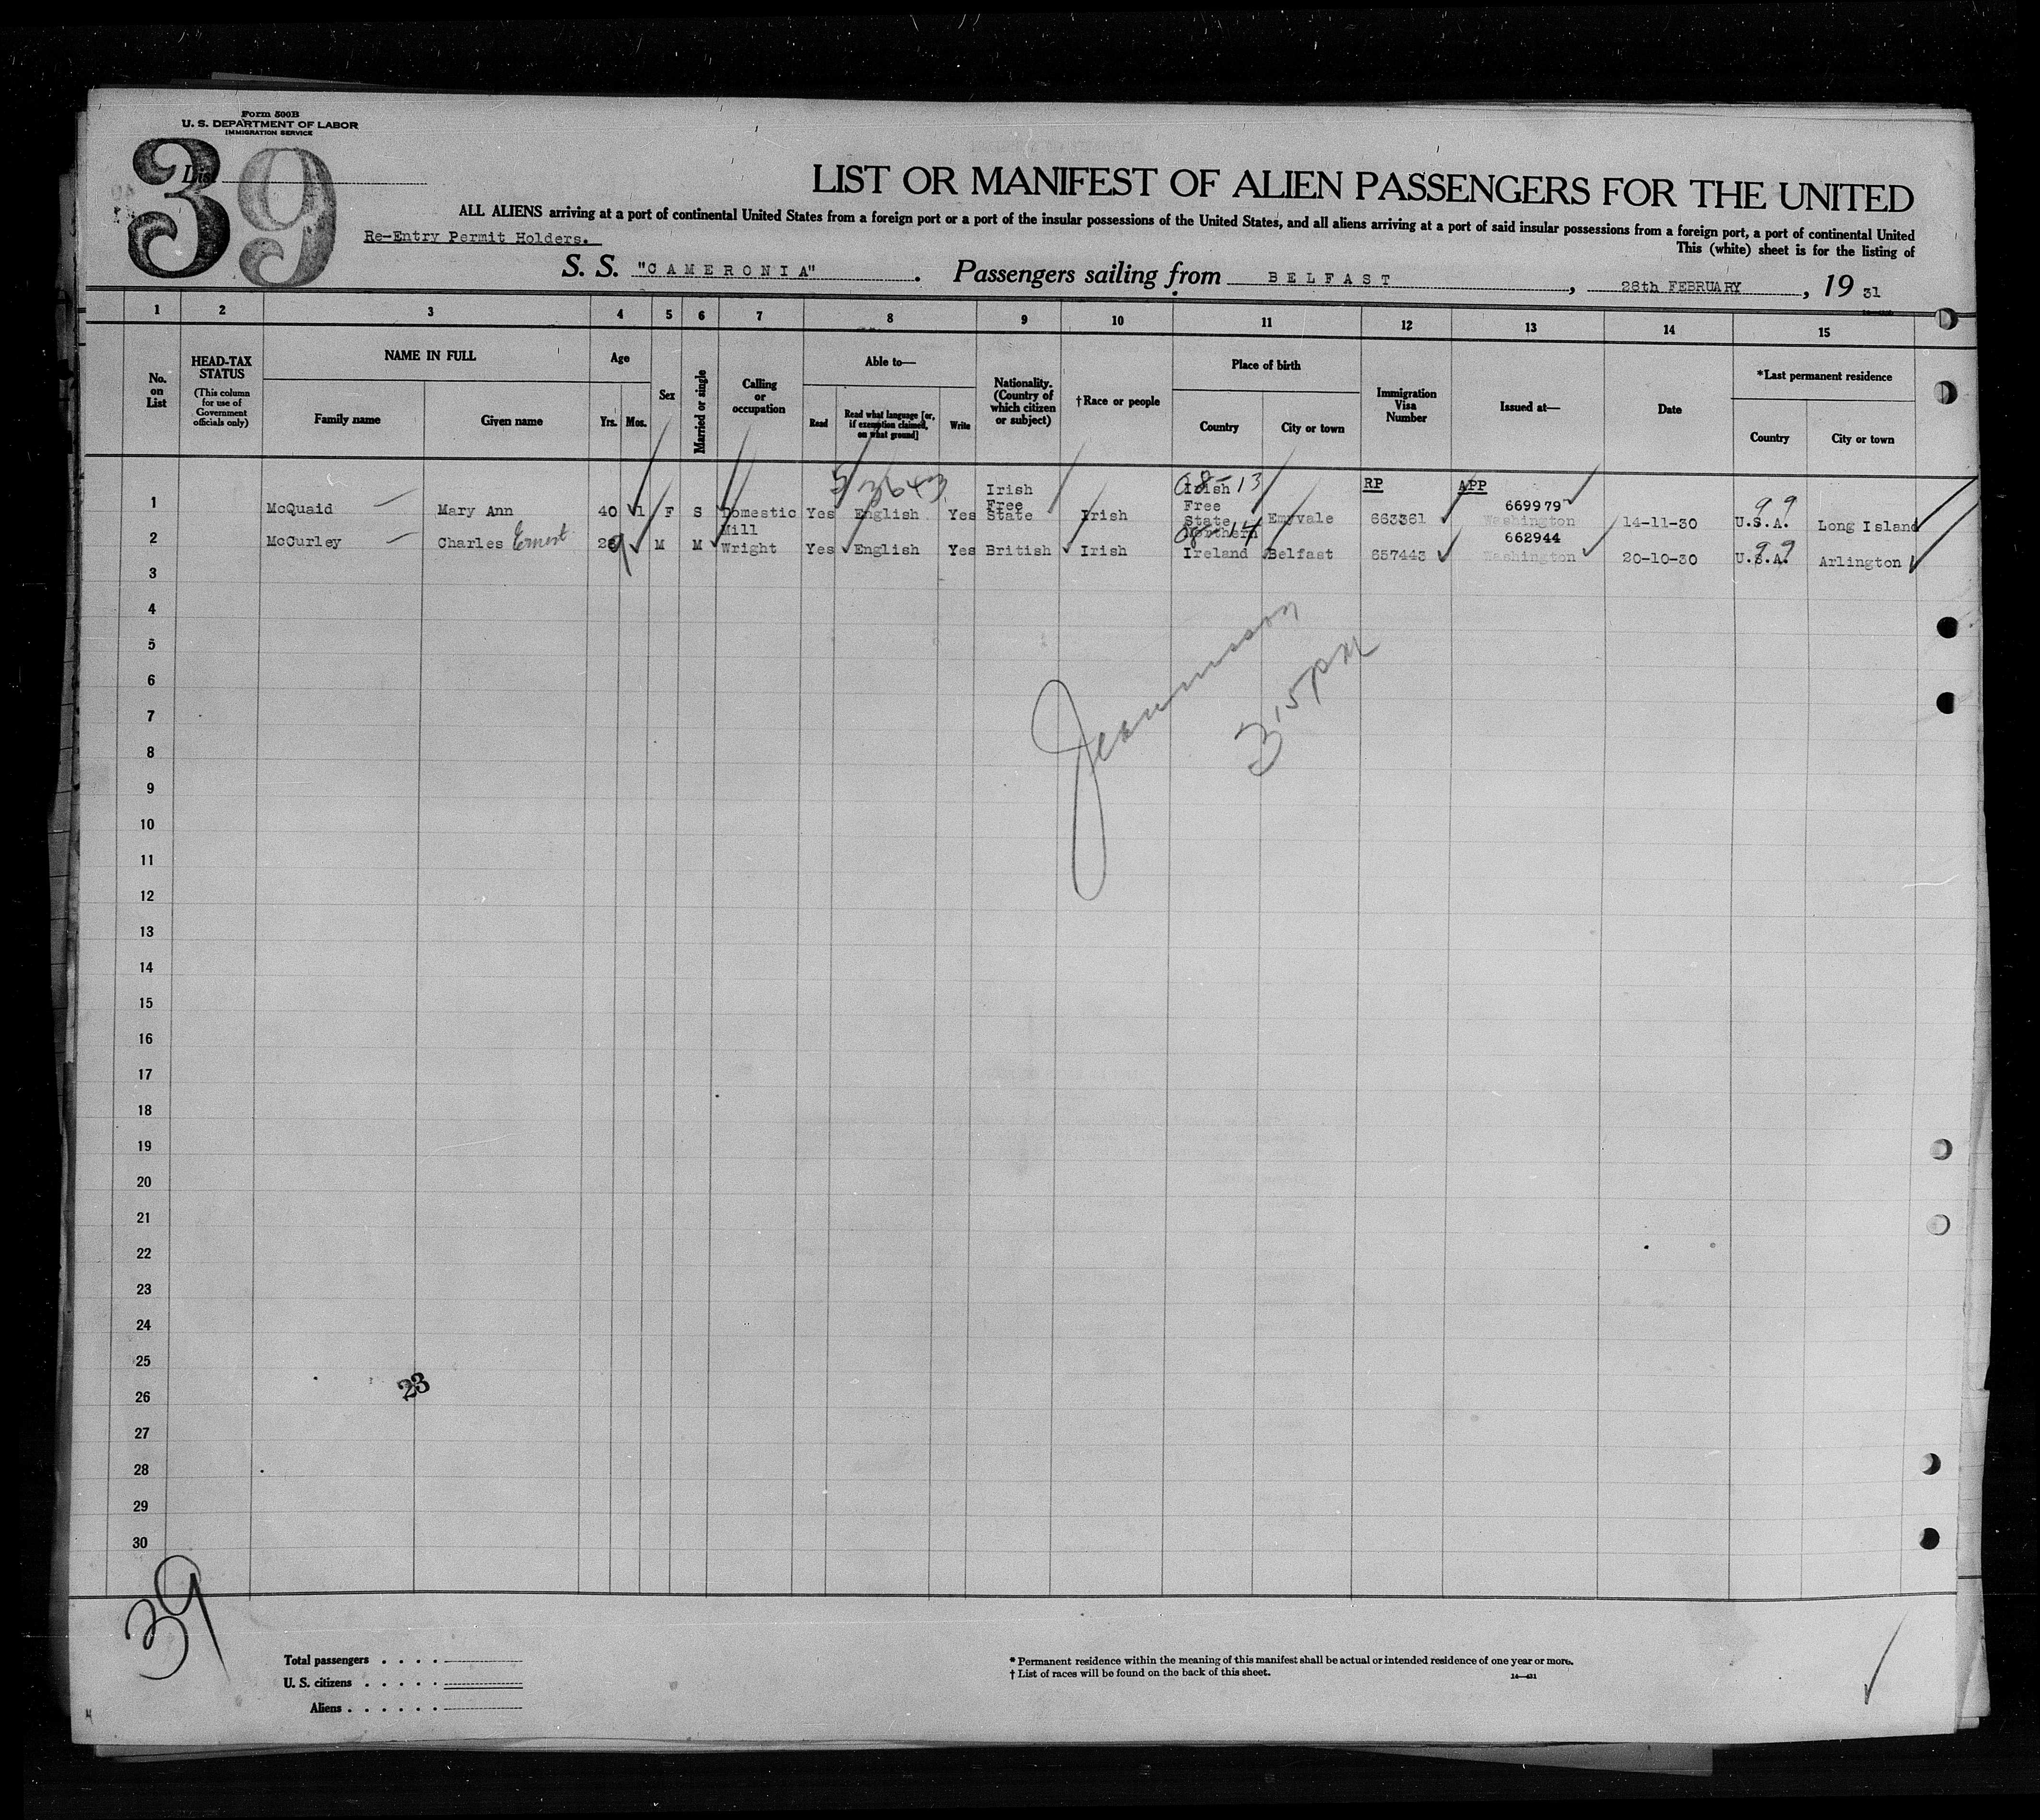 Form 500B
U. S. DEPARTMENT OF LABOR
IMMIGRATION SERVICE
39
List
LIST OR MANIFEST OF ALIEN PASSENGERS FOR THE UNITED
ALL ALIENS arriving at a port of continental United States from a foreign port or a port of the insular possessions of the United States, and all aliens arriving at a port of said insular possessions from a foreign port, a port of continental United
Re-Entry Permit Holders.
This (white) sheet is for the listing of
S. S. "CAMERONIA". Passengers sailing from BELFAST, 28th FEBRUARY, 19 31
1 2 3 4 5 6 7 8 9 10 11 12 13 14 15
No. on List
HEAD-TAX STATUS
(This column for use of Government officials only)
NAME IN FULL
Family name
Given name
Age
Yrs. Mos.
Sex
Married or single
Calling or occupation
Able to—
Read
Read what language [or, if exemption claimed, on what ground]
Write
Nationality. (Country of which citizen or subject)
†Race or people
Place of birth
Country
City or town
Immigration Visa Number
Issued at—
Date
*Last permanent residence
Country
City or town
RP APP
1 McQuaid Mary Ann 40 1 F S Domestic Yes English Yes Irish Free State Irish Irish Free State Emyvale 663361 669979 Washington 14-11-30 U.S.A. Long Island
08-13
99
2 McCurley Charles Ernest 29 M M Mill Wright Yes English Yes British Irish Northern Ireland Belfast 657443 662944 Washington 20-10-30 U.S.A. Arlington
08-14
99
3
4
5
6
7
8
9
10
11
12
13
14
15
16
17
18
19
20
21
22
23
24
25
26
27
28
29
30
3 15 PM
23
39
Total passengers
U. S. citizens
Aliens
* Permanent residence within the meaning of this manifest shall be actual or intended residence of one year or more.
† List of races will be found on the back of this sheet.